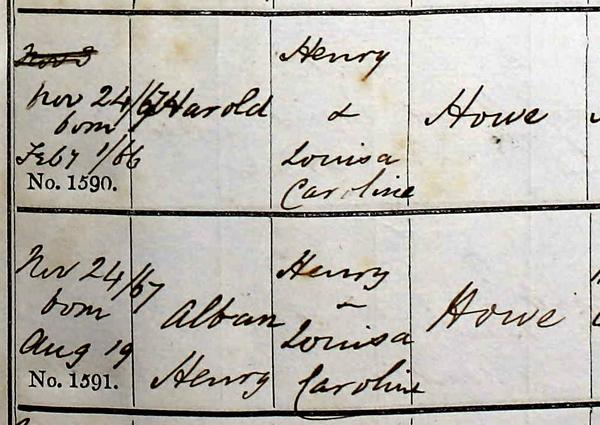 Nov 24/67 Harold Henry & Louisa Caroline Howe
born
Feby 1/66
No. 1590.
Nov 24/67 Alban Henry Henry & Louisa Caroline Howe
born
Aug 19
No. 1591.